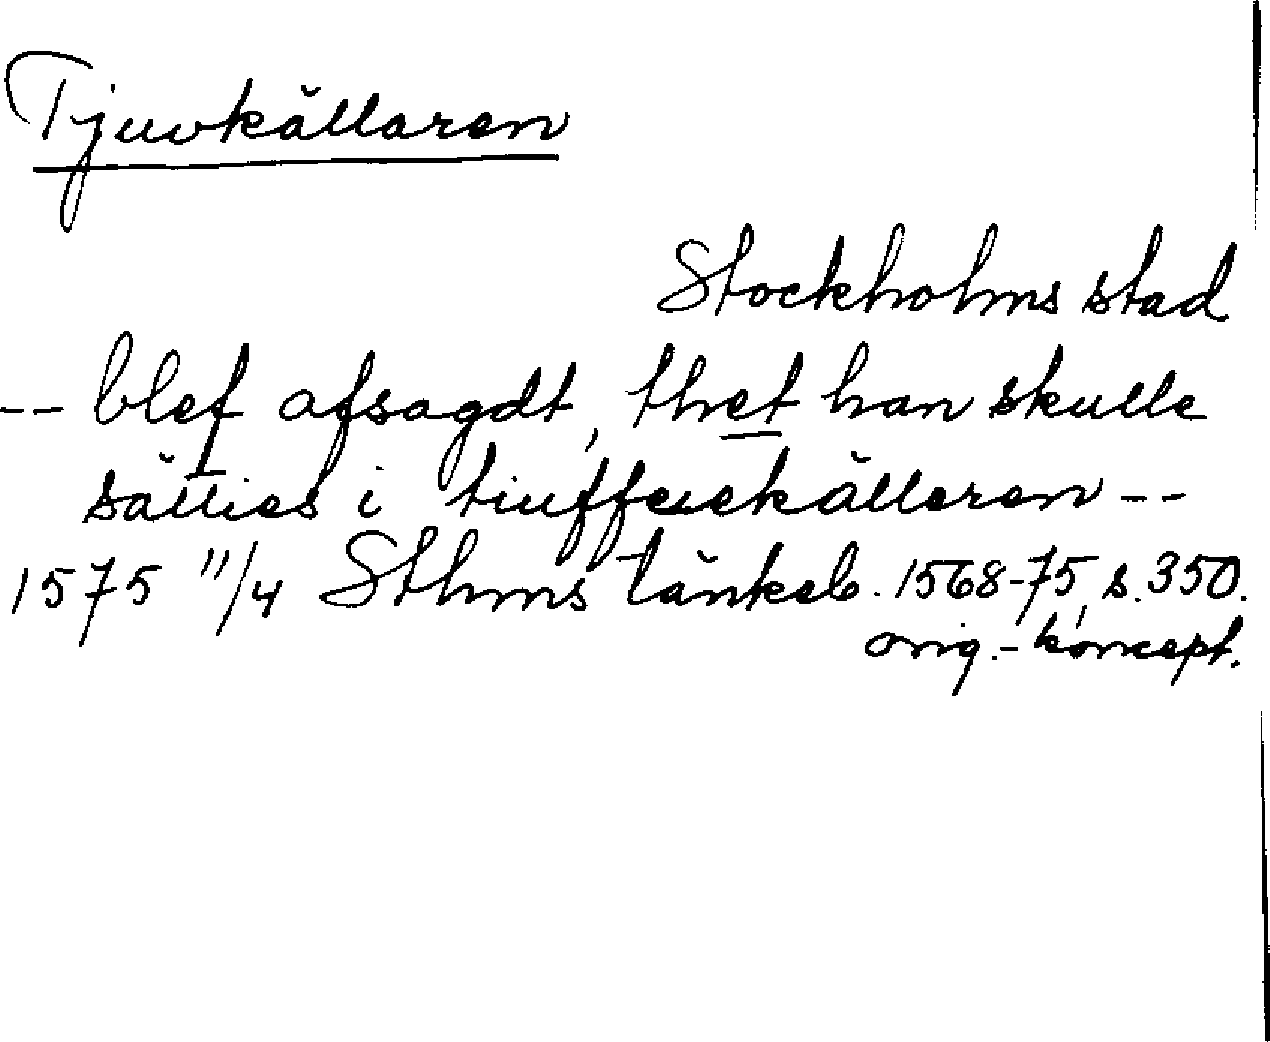 Tjuvkällaren
Stockholms stad
-- blef afsagdt, thet han skulle
sätties i tiuffvekälleren --
1575 11/4 Sthms tänkeb. 1568-75, s. 350.
orig.-koncept.